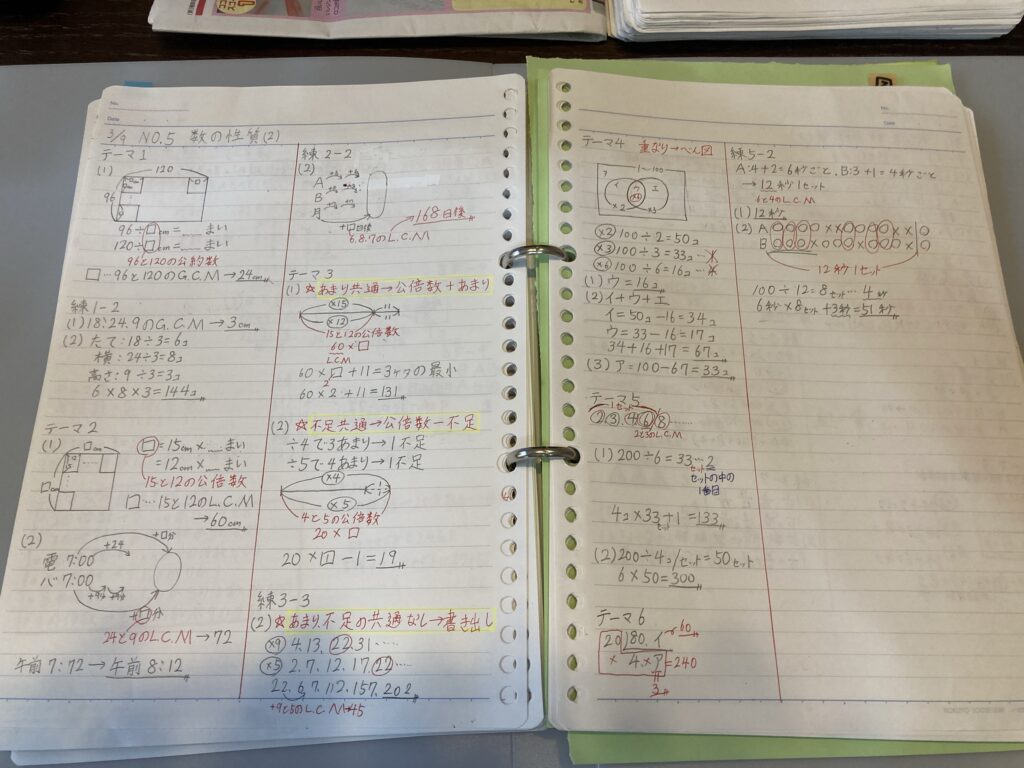 No.
Date
3/9 NO.5 数の性質(2)
テーマ1
(1)
120
96
96÷□cm=…まい
120÷□cm=…まい
96と120の公約数
□…96と120のG.C.M→24cm
練1-2
(1)18.24.9のG.C.M→3cm
(2)たて:18÷3=6コ
横:24÷3=8コ
高さ:9÷3=3コ
6×8×3=144コ
テーマ2
(1)
□cm
□=15cm×…まい
=12cm×…まい
15と12の公倍数
□…15と12のL.C.M
→60cm
(2)
+□分
+24
電 7:00
バ 7:00
+9 +9
+□分
24と9のL.C.M→72
午前7:72→午前8:12
練2-2
(2)
A
B
月
+□日後
168日後
6.8.7のL.C.M
テーマ3
(1)☆あまり共通→公倍数+あまり
×15
11
×12
15と12の公倍数
60×□
LCM
60×□+11=3ケタの最小
2
60×2+11=131
(2)☆不足共通→公倍数-不足
÷4で3あまり→1不足
÷5で4あまり→1不足
×4
1
×5
4と5の公倍数
20×□
20×□-1=19
練3-3
(2)☆あまり、不足の共通なし→書き出し
×9 4.13.22.31…
×5 2.7.12.17.22…
22.67.112.157.202
+9と5のL.C.M→45
No.
Date
テーマ4 重なり→べん図
1~100
ア
イ
ウ
×6
エ
×2
×3
×2 100÷2=50コ
×3 100÷3=33コ…1
×6 100÷6=16コ…4
(1)ウ=16コ
(2)イ+ウ+エ
イ=50-16=34コ
ウ=33-16=17コ
34+16+17=67コ
(3)ア=100-67=33コ
テーマ5
1セット
2.3.4.6.8…
2と3のL.C.M
(1)200÷6=33…2
セット
セットの中の
1番目
4コ×33セット+1=133
(2)200÷4コ/セット=50セット
6×50=300
テーマ6
20 180.イ→60
×4.×ア=240
3
練5-2
A:4+2=6秒ごと、B:3+1=4秒ごと
→12秒1セット
6と4のL.C.M
(1)12秒
(2)A○○○○××○○○○××○
B○○○×○○○×○○○×○
12秒1セット
100÷12=8セット…4秒
6秒×8セット+3秒=51秒